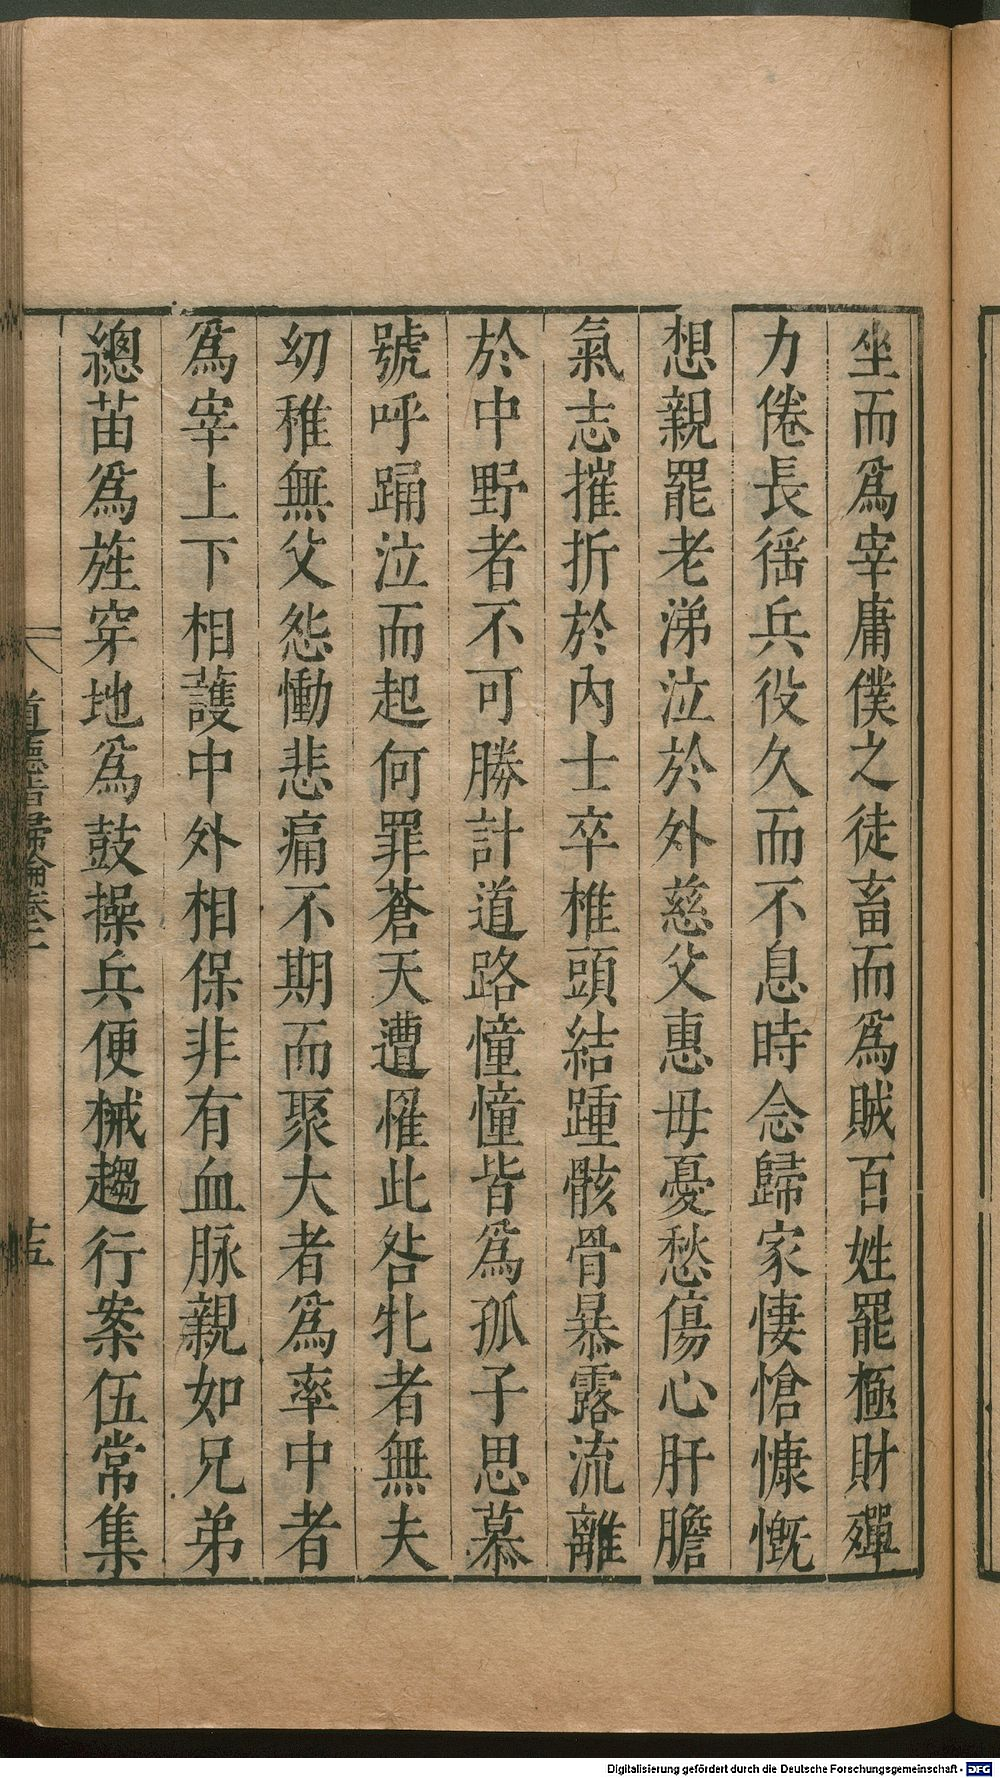 坐而爲宰庸僕之徒畜而爲賊百姓罷極財殫
力倦長徭兵役久而不息時念歸家悽愴慷慨
想親罷老涕泣於外慈父惠母憂愁傷心肝膽
氣志摧折於內士卒椎頭結踵骸骨暴露流離
於中野者不可勝計道路憧憧皆爲孤子思慕
號呼踊泣而起何罪蒼天遭罹此咎牝者無夫
幼稚無父怨慟悲痛不期而聚大者爲率中者
爲宰上下相護中外相保非有血脉親如兄弟
總苗爲旌穿地爲鼓操兵便械趨行案伍常集
道德指歸論卷二
十五
Digitalisierung gefördert durch die Deutsche Forschungsgemeinschaft - DFG